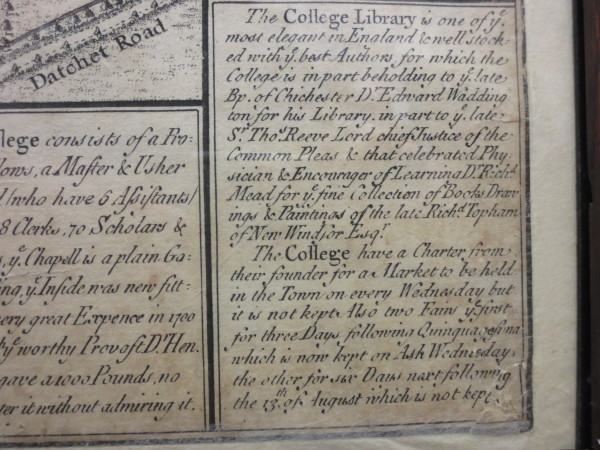 Datchet Road
llege consists of a Pro-
llows, a Master & Usher
d (who have 5 Assistants)
8 Clerks, 70 Scholars &
s, yͤ Chapell is a plain Go-
ing, yͤ Inside was new fitt-
ery great Expence in 1700
yͤ worthy Provost Dʳ Hen.
gave a 1000 Pounds, no
ter it without admiring it.
The College Library is one of yͤ
most elegant in England & well stock
ed with yͤ best Authors, for which the
College is in part beholding to yͤ late
Bp. of Chichester Dʳ Edward Wadding
ton for his Library, in part to yͤ late
Sʳ Thoˢ Reeve Lord chief Justice of the
Common Pleas & that celebrated Phy-
sician & Encourager of Learning Dʳ Richᵈ
Mead for yͤ fine Collection of Books Draw
ings & Paintings of the late Richᵈ Topham
of New Windsor Esqʳ
The College have a Charter from
their founder for a Market to be held
in the Town on every Wednesday but
it is not kept. Also two Fairs yͤ first
for three Days following Quinquagesima
which is now kept on Ash Wednesday,
the other for six Days next following
the 13ᵗʰ of August which is not kept.